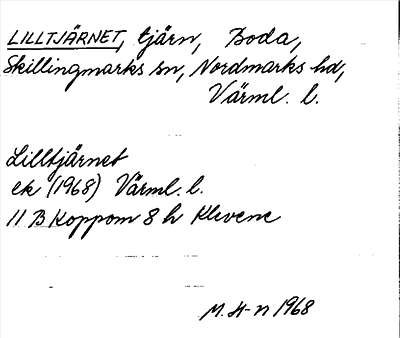 LILLTJÄRNET, tjärn, Boda,
Skillingmarks sn, Nordmarks hd,
Värml. l.
Lilltjärnet
ek (1968) Värml. l.
11 B Koppom 8 h Klevene
M. H-n 1968